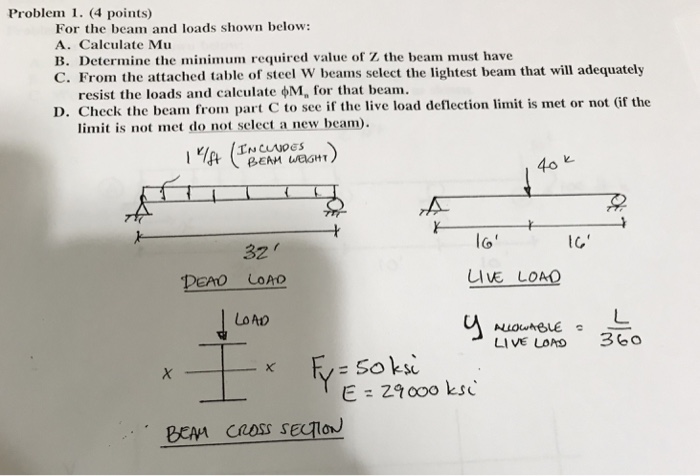 Problem 1. (4 points)
For the beam and loads shown below:
A. Calculate Mu
B. Determine the minimum required value of Z the beam must have
C. From the attached table of steel W beams select the lightest beam that will adequately
resist the loads and calculate ϕMn for that beam.
D. Check the beam from part C to see if the live load deflection limit is met or not (if the
limit is not met do not select a new beam).
1 K/ft (INCLUDES
BEAM WEIGHT)
40 K
32'
16' 16'
DEAD LOAD
LIVE LOAD
LOAD
y ALLOWABLE LIVE LOAD = L/360
X X
Fy = 50 ksi
E = 29000 ksi
BEAM CROSS SECTION